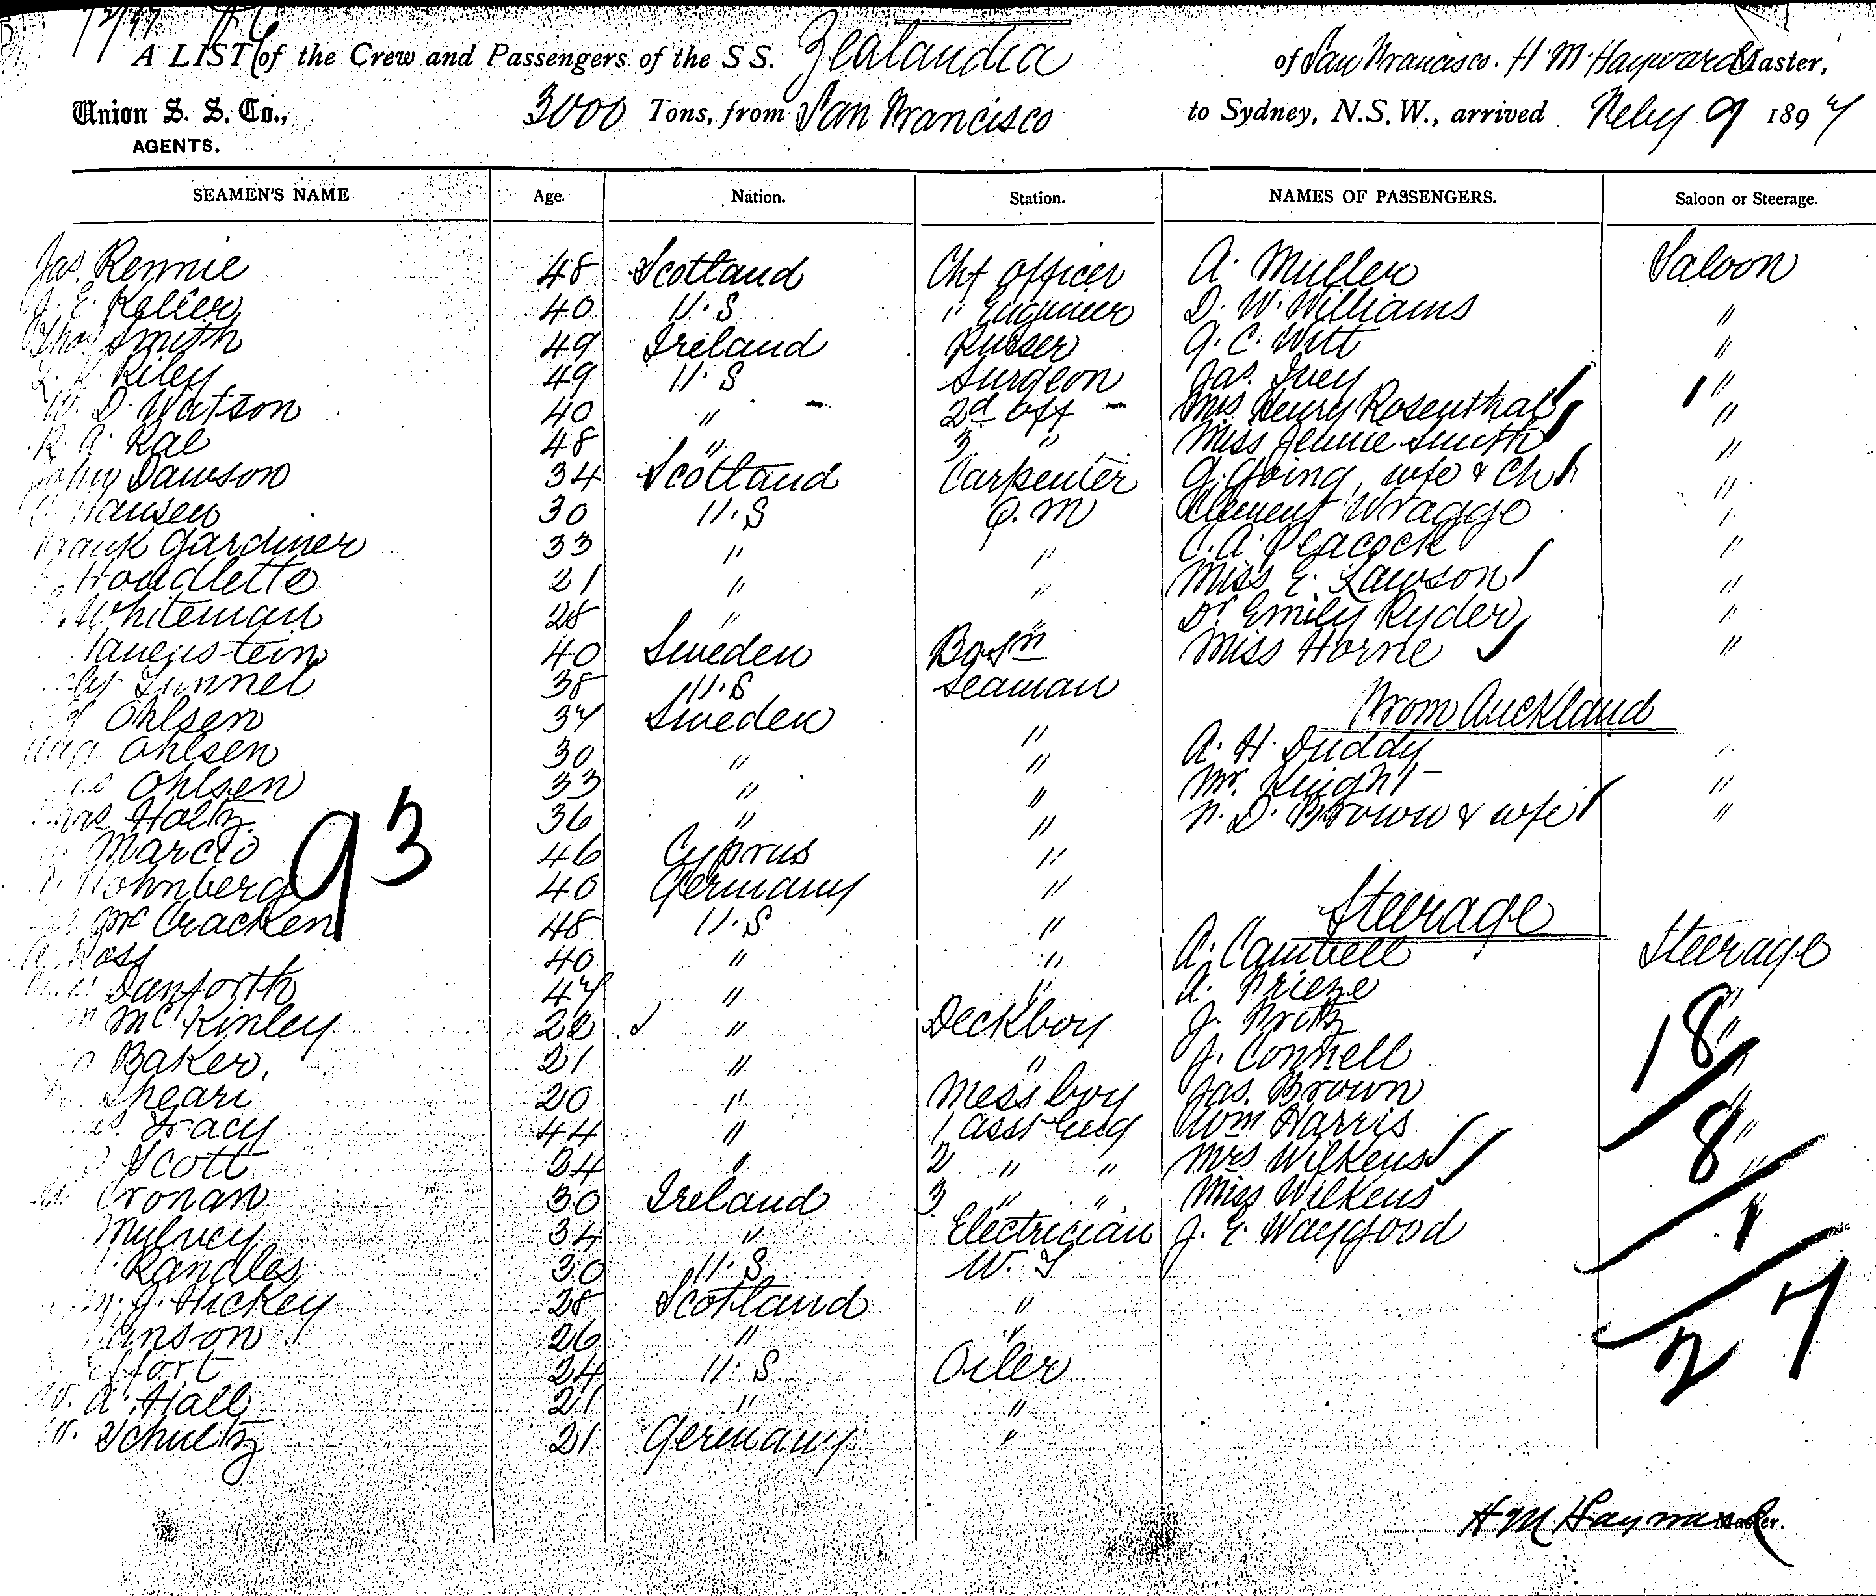 A LIST of the Crew and Passengers of the S S. Zealandia of San Francisco. H. M. Hayward Master,
Union S. S. Co., 3000 Tons, from San Francisco to Sydney, N.S.W., arrived Feby 9 1897
AGENTS.
SEAMEN'S NAME Age. Nation. Station. NAMES OF PASSENGERS. Saloon or Steerage.
Jas. Rennie 48 Scotland Chf Officer A. Muller Saloon
40 U.S " Engineer D. W. Williams "
Thos Smith 49 Ireland Purser G. C. Witt "
Riley 49 U.S Surgeon Jas. Ivey "
W. D. Watson 40 " 2d Off Mrs. Henry Rosenthal "
R. A. Rae 48 " 3 " Miss Jennie Smith "
John Dawson 34 Scotland Carpenter A. Going wfe & Ch "
Hansen 30 U.S Q.M Clement Wragge "
Frank Gardiner 33 " " C. A. Peacock "
Houdlette 21 " " Miss E. Lawson "
Whiteman 28 " " Dr Emily Ryder "
40 Sweden Bosn Miss Horne "
38 U.S Seaman
From Auckland
Ohlsen 37 Sweden "
Ohlsen 30 " " A. H. Duddy "
Ohlsen 33 " " Mr. "
Holtz 36 " " N. D. Brown & wfe "
93
Marcio 46 Cyprus "
40 Germany "
Steerage
McCracken 48 U.S "
Ross 40 " " A. Cambell Steerage
Danforth 47 " " A. "
McKinley " Deckboy J. "
Baker. 21 " " J. Connell
20 " Mess boy Jas. Brown "
Tracy 44 " 1 asst Eng Wm Harris "
Scott 24 " 2 " " Mrs Wilkens "
Cronan 30 Ireland 3 " " Miss Wilkens "
34 " Electrician J. E. Waygood
Randles 30 U.S W. T
J. Hickey 28 Scotland "
26 " "
24 U.S Oiler
A. Hall 21 " "
Schultz 21 Germany "
18
8
1
27
H M Hayward Master.